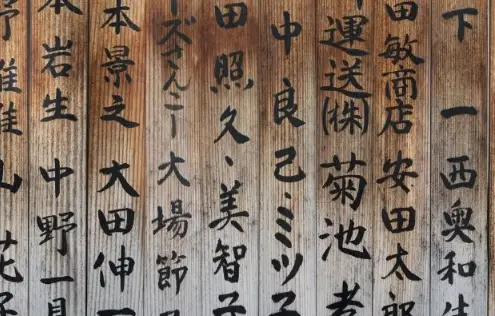 下 一 西奥和
田敏商店 安田太郎
運送㈱ 菊池
中良己・ミツ子
田照久、美智子
ズさんこー 大場節
本景之 大田伸一
本岩生 中野一
雄 山花